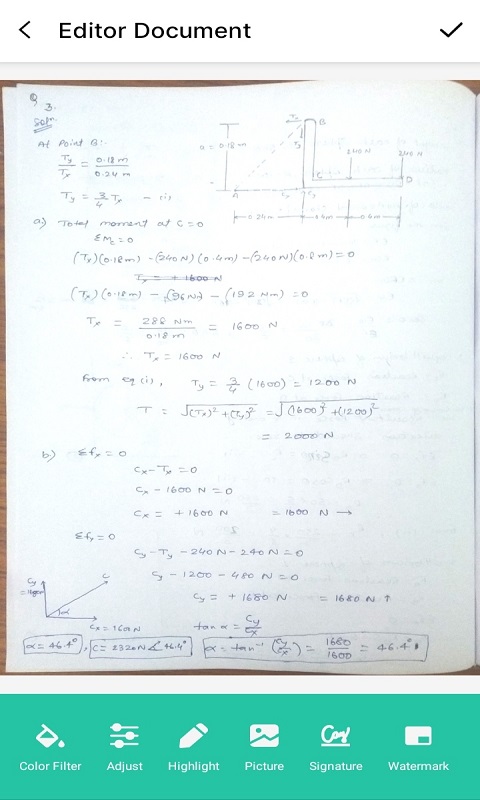 Editor Document
Q 3.
Soln.
At Point B:-
Ty/Tx = 0.18m/0.24m
Ty = 3/4 Tx - (i)
a = 0.18m
Tx
B
Ty
240 N
240 N
A
C
D
Cx
Cy
0.24m
0.4m
0.4m
a) Total moment at C = 0
ΣMc = 0
(Tx)(0.18m) - (240N)(0.4m) - (240N)(0.8m) = 0
Tx = + 1600 N
(Tx)(0.18m) - (96N) - (192 Nm) = 0
Tx = 288 Nm/0.18m = 1600 N
∴ Tx = 1600 N
From eq (i), Ty = 3/4 (1600) = 1200 N
T = √(Tx)² + (Ty)² = √(1600)² + (1200)²
= 2000 N
b) Σfx = 0
Cx - Tx = 0
Cx - 1600 N = 0
Cx = + 1600 N = 1600 N →
Σfy = 0
Cy - Ty - 240N - 240 N = 0
Cy - 1200 - 480 N = 0
Cy = + 1680 N = 1680 N ↑
Cy
C
α
Cx = 1600 N
tan α = Cy/Cx
α = 46.4°, C = 2320N ∡ 46.4° α = tan⁻¹ (Cy/Cx) = 1680/1600 = 46.4°
Color Filter
Adjust
Highlight
Picture
Signature
Watermark